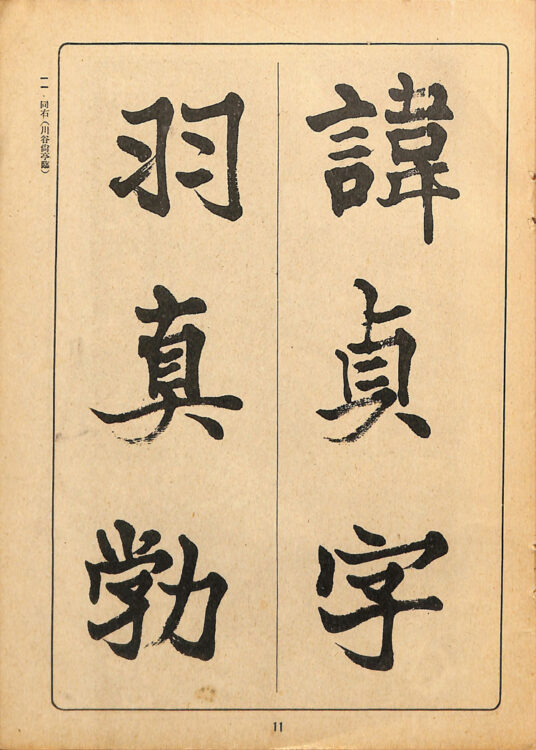 諱貞字
羽真勃
一一、同右(川谷尚亭臨)
11